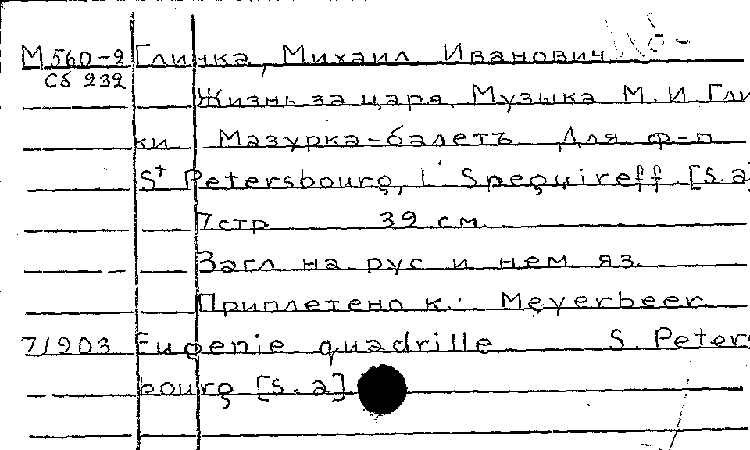 М560-2 Глинка, Михаил Иванович.
Сб 232
Жизнь за царя. Музыка М. И Гли
ки Мазурка-балетъ. Для ф-п
St Petersbourg, L' Spequireff [s.a
7 стр 39 см.
Загл на рус и нем яз.
Приплетено к: Meyerbeer
71903 Eugenie quadrille S. Peters
bourg [s.a]